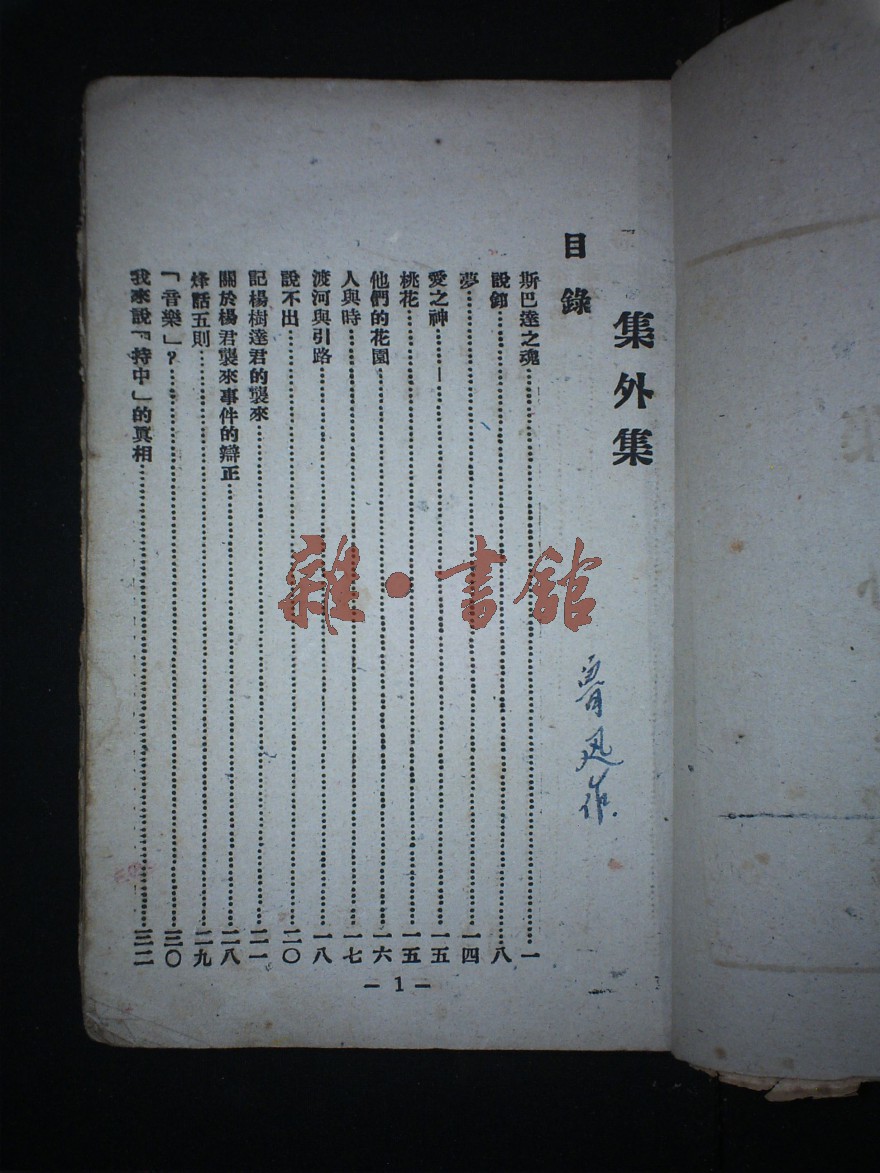 集外集
目錄
斯巴達之魂……一
說鈤……八
夢……一四
愛之神……一五
桃花……一五
他們的花園……一六
人與時……一七
渡河與引路……一八
說不出……二〇
記楊樹達君的襲來……二一
關於楊君襲來事件的辯正……二八
烽話五則……二九
「音樂」？……三〇
我來說「持中」的眞相……三二
— 1 —
魯迅作
雜·書舘